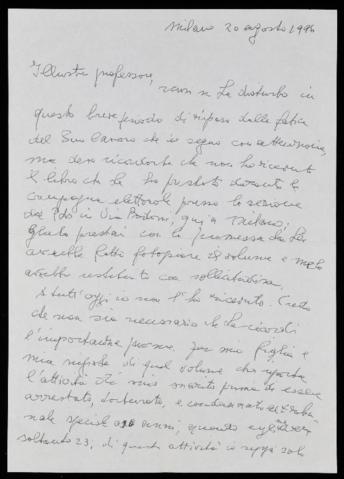 Milano 20 agosto 1996
Illustre professore,
scusi se La disturbo in
questo breve periodo di riposo dalle fatiche
del Suo lavoro che io seguo con attenzione,
ma devo ricordarLe che non ho ricevuto
il libro che Le ho prestato durante la
campagna elettorale presso la sezione
del Pds in Via qui a Milano;
Glielo prestai con la promessa che Lei
avrebbe fatto fotocopiare il volume e me lo
avrebbe restituito con sollecitudine.
A tutt'oggi io non l'ho ricevuto. Credo
che non sia necessario che Le ricordi
l'importanza per mia figlia e
mia nipote di quel volume che riporta
l'attività di mio marito prima di essere
arrestato, torturato, e condannato dal Tribu
nale speciale a anni, quando egli ne aveva
soltanto 23, di quante attività io seppi solo